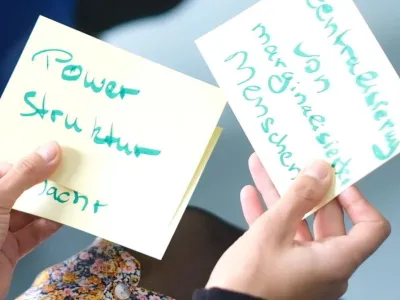 Power
Struktur
acht
entralisierung
von
marginalisierte
Menschen